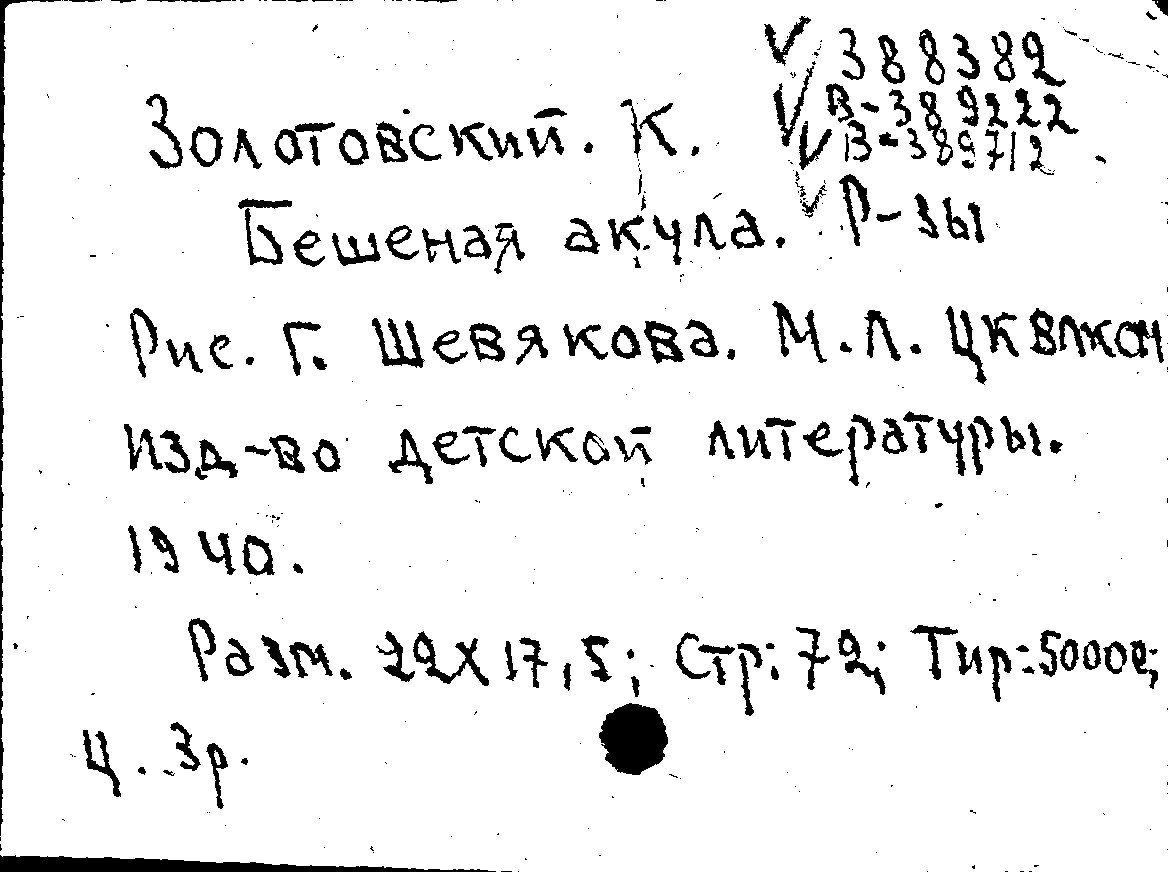 388382
В-389222
Золотовский. К.
В-389712
Бешеная акула. Р-зы
Рис. Г. Шевякова. М.Л. ЦК ВЛКСМ
Изд-во детской литературы.
1940.
Разм. 22х17,5; Стр: 72; Тир: 50000;
Ц. 3р.